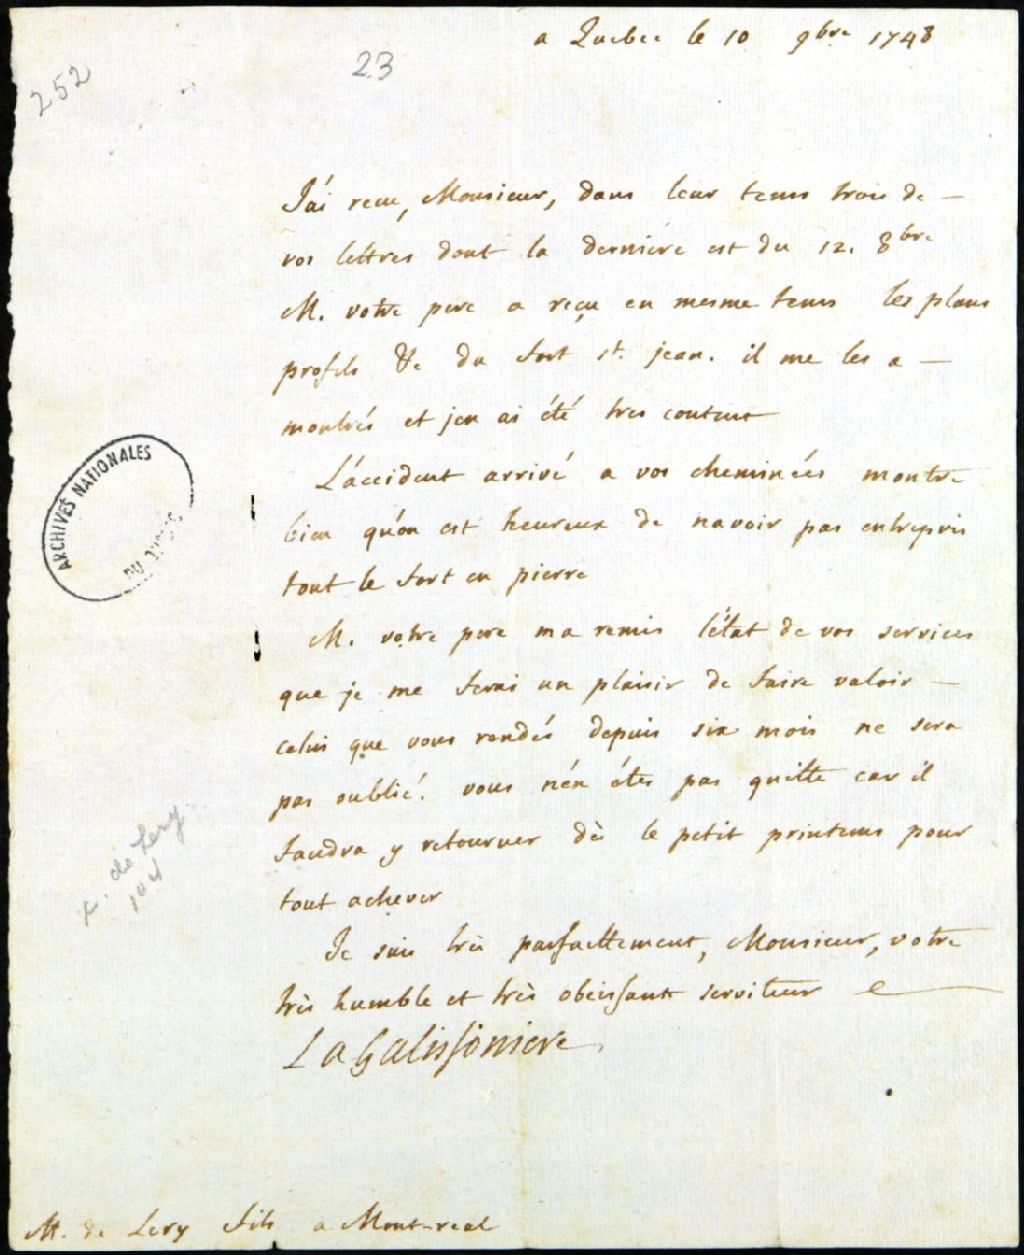 a Quebec le 10 9bre 1748
252
23
J'ai reçu, Monsieur, dans leur tems trois de
vos lettres dont la derniere est du 12. 8bre
M. votre pere a reçu en mesme tems les plans
profils &c du fort st. jean. il me les a
montrés et j'en ai été tres content
L'accident arrivé a vos cheminées montre
bien qu'on est heureux de navoir pas entrepris
tout le fort en pierre
M. votre pere ma remis l'état de vos services
que je me ferai un plaisir de faire valoir
celui que vous rendés depuis six mois ne sera
pas oublié. vous n'én étes pas quitte car il
faudra y retourner dès le petit printems pour
tout achever
Je suis très parfaittement, Monsieur, votre
très humble et très obeissant serviteur
LaGalissoniere
ARCHIVES NATIONALES
DU
de Lery
104
M. de Lery fils a Mont-real